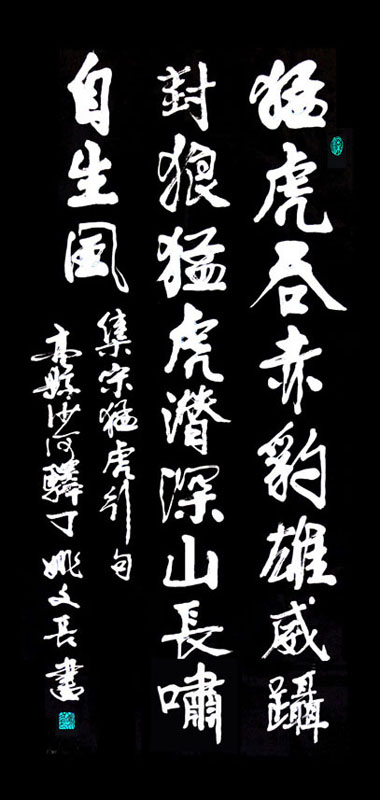 猛虎吞赤豹雄威躡
封狼猛虎潛深山長嘯
自生風
集宋猛虎引句
沙河驎丁姚文長書